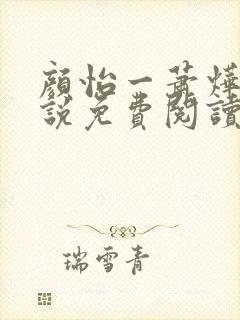 顏怡一蕭燁
說免費閱讀
瑞雪青